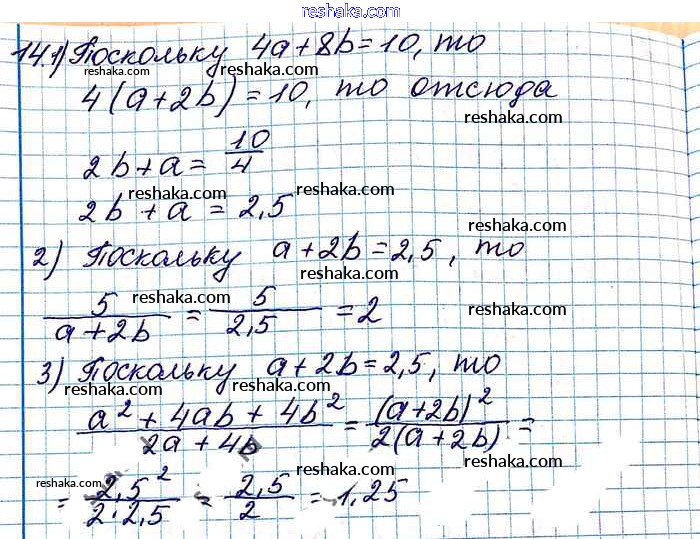 reshaka.com
14.1) Поскольку 4a+8b=10, то
reshaka.com reshaka.com reshaka.com
4(a+2b)=10, то отсюда
reshaka.com
2b+a=10/4
reshaka.com
reshaka.com reshaka.com
2b+a=2,5
2) Поскольку a+2b=2,5, то
reshaka.com
5/(a+2b)=5/2,5=2
reshaka.com reshaka.com reshaka.com
3) Поскольку a+2b=2,5, то
reshaka.com reshaka.com reshaka.com
(a²+4ab+4b²)/(2a+4b)=(a+2b)²/(2(a+2b))=
=2,5²/(2·2,5)=2,5/2=1,25
reshaka.com reshaka.com reshaka.com